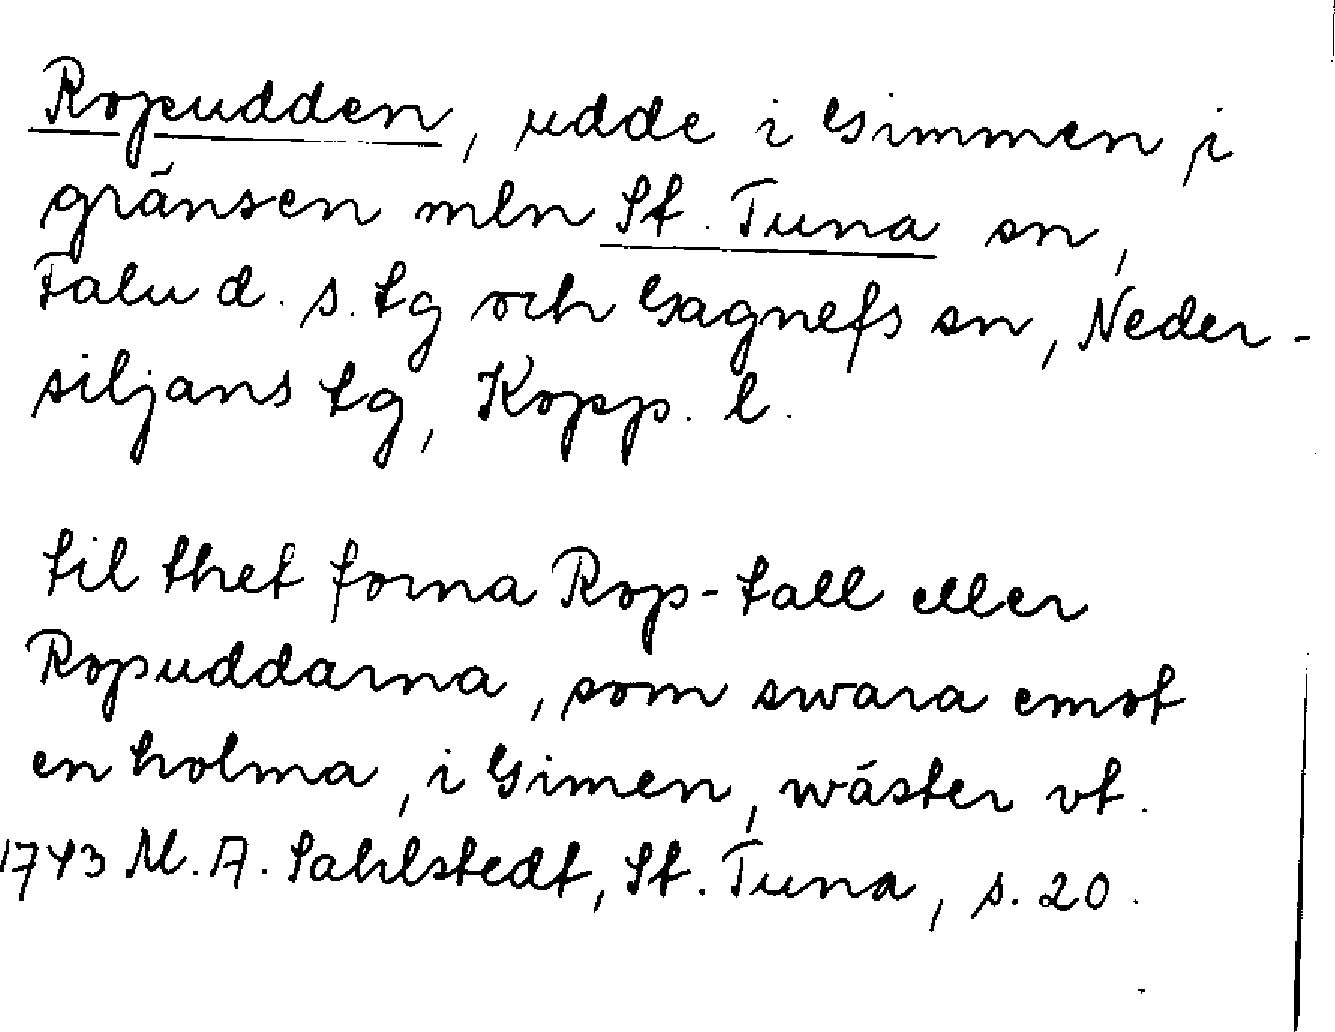 Ropudden, udde i Gimmen i
gränsen mln St. Tuna sn,
Falu d. s. tg och Gagnefs sn, Neder-
siljans tg, Kopp. l.
til thet forna Rop-tall eller
Ropuddarna, som swara emot
en holma, i Gimen, wäster vt.
1743 M. A. Sahlstedt, St. Tuna, s. 20.